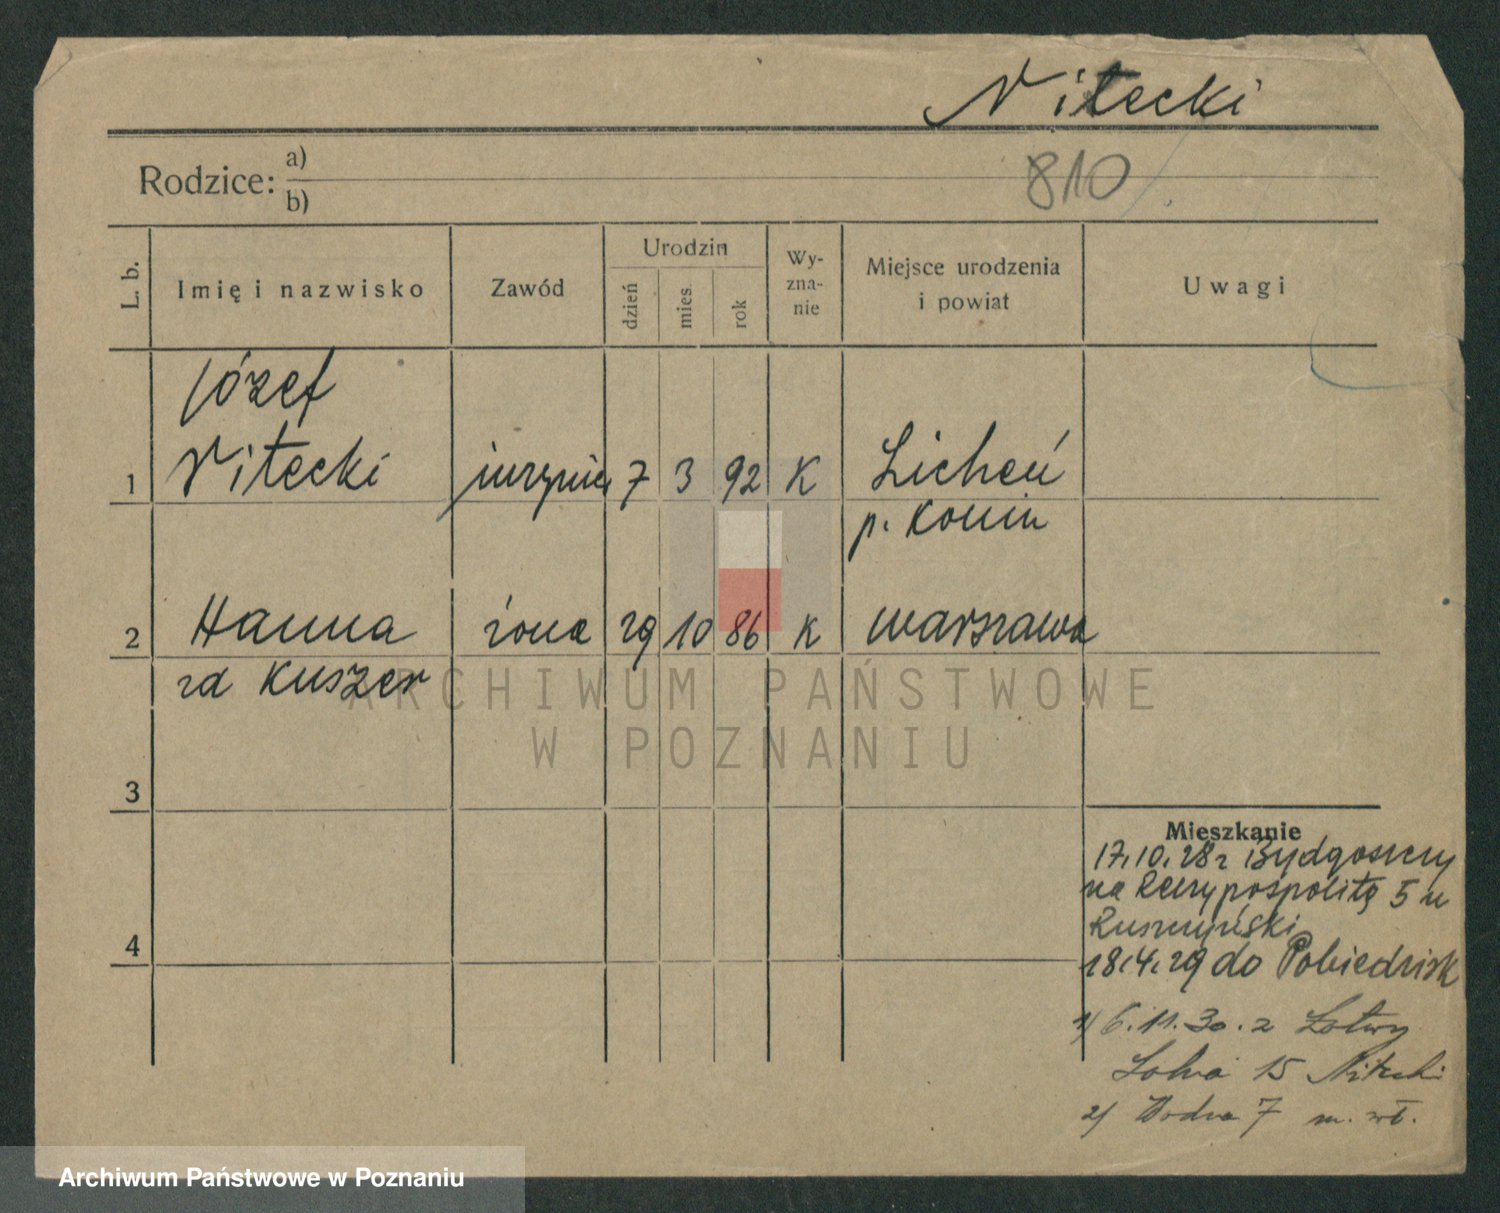 Nitecki
810
Rodzice: a)
b)
L. b.
Imię i nazwisko
Zawód
Urodzin
dzień
mies.
rok
Wy-
zna-
nie
Miejsce urodzenia
i powiat
Uwagi
Józef
1 Nitecki inżynier 7 3 92 K Licheń
p. Konin
2 Hanna żona 29 10 86 K Warszawa
zd Kuszer
3
4
Mieszkanie
17.10.28 z Bydgoszczy
na Rzeczypospolitę 5 u
Ruszczyński
18.4.29 do Pobiedzisk
1) 6.11.30. z
15 Nitecki
2) Wodna 7 m. wł.
ARCHIWUM PAŃSTWOWE
W POZNANIU
Archiwum Państwowe w Poznaniu